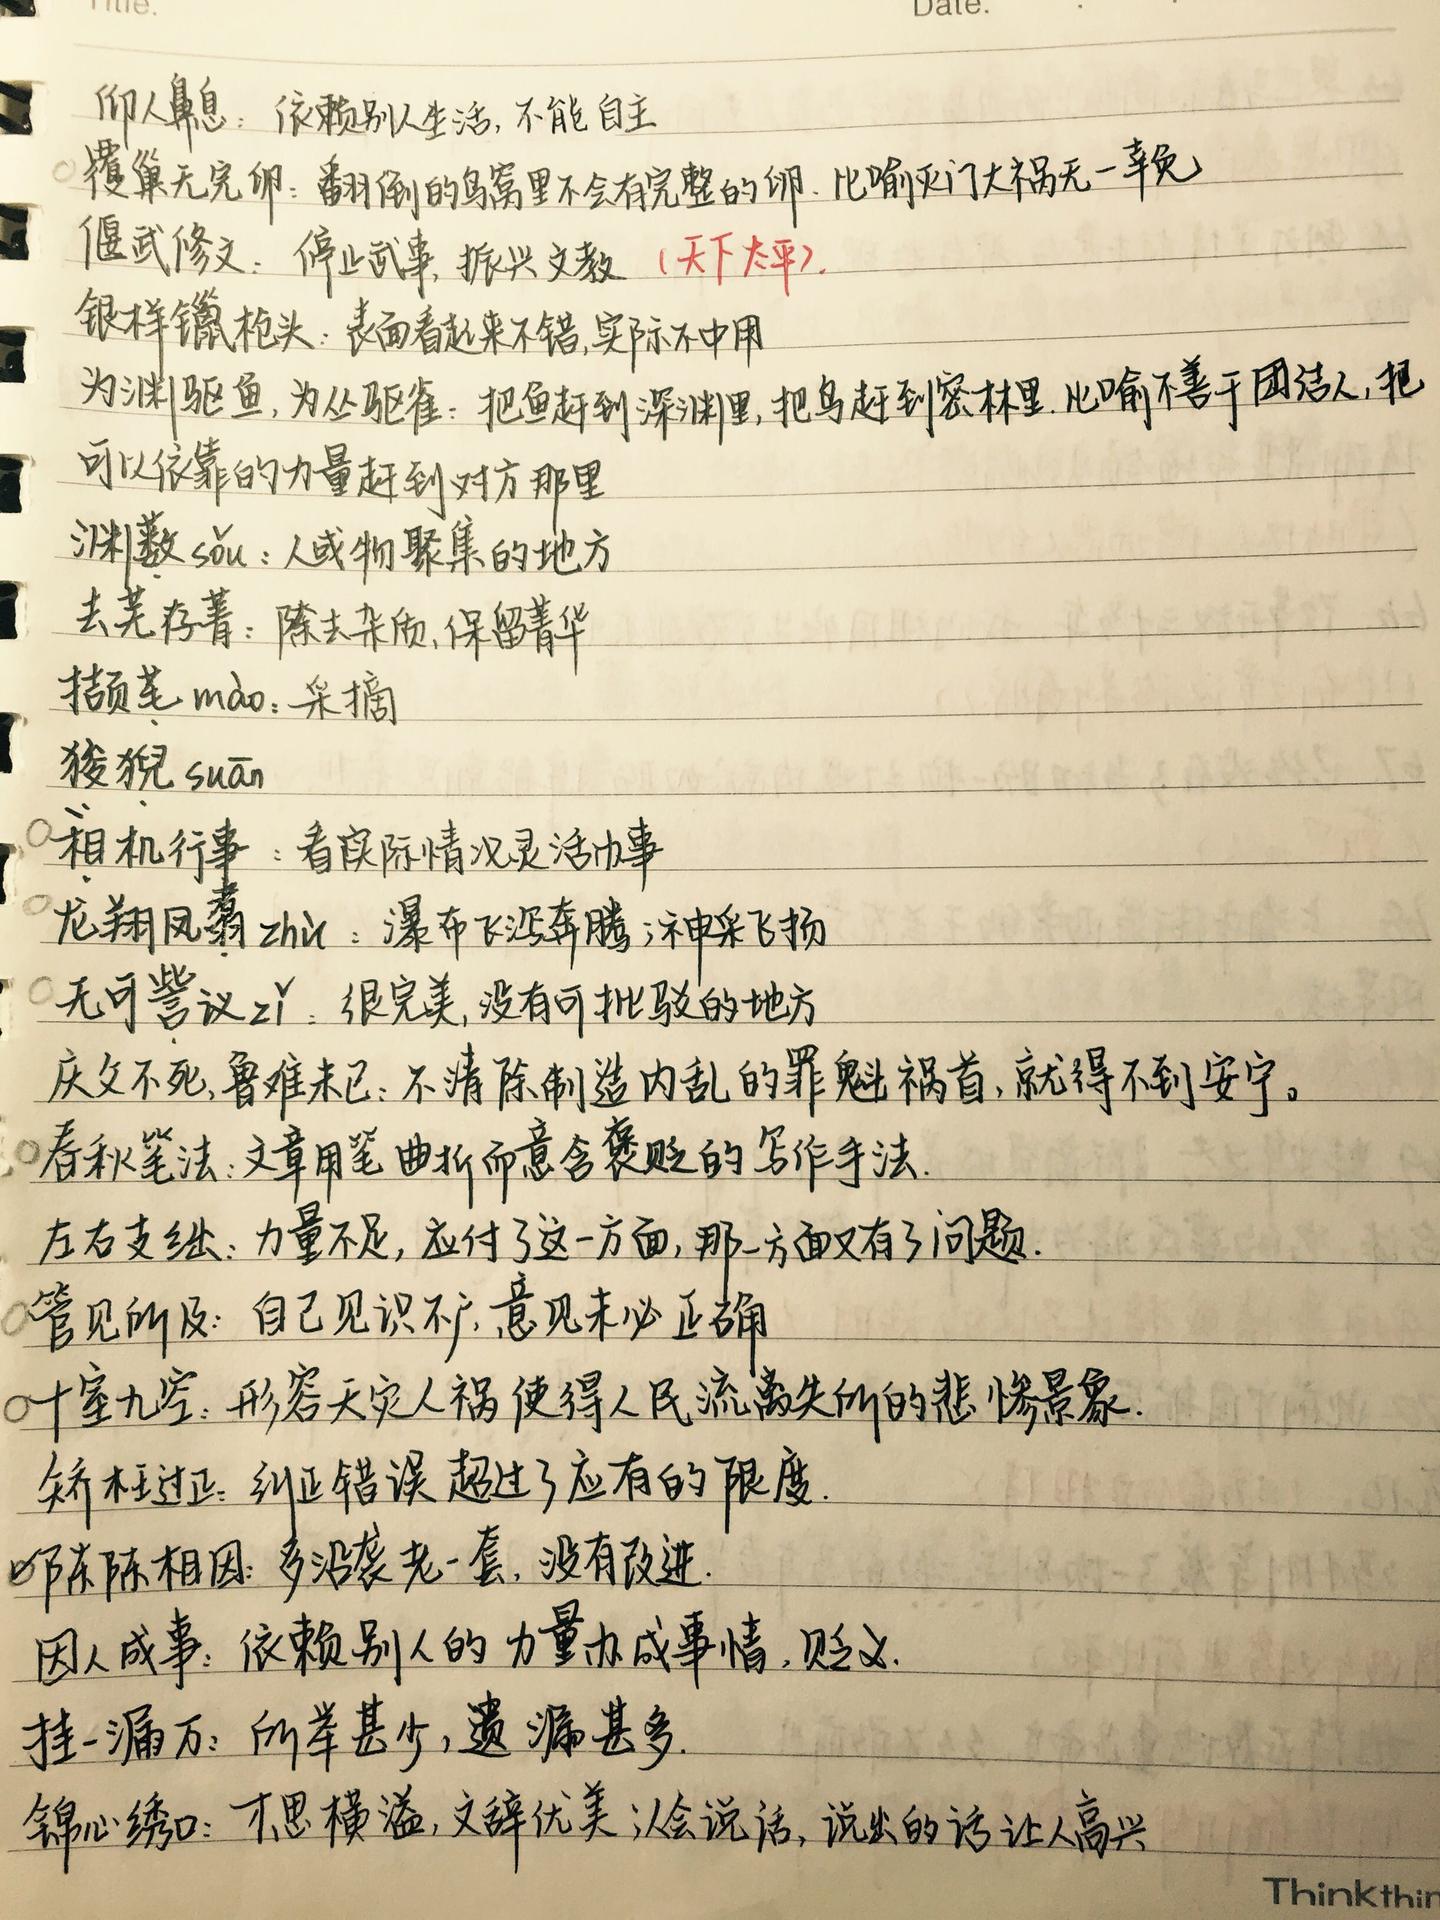 Title.
Date.
仰人鼻息：依赖别人生活，不能自主
覆巢无完卵：翻倒的鸟窝里不会有完整的卵.比喻灭门大祸无一幸免
偃武修文：停止武事，振兴文教（天下太平）.
银样镴枪头：表面看起来不错，实际不中用
为渊驱鱼，为丛驱雀：把鱼赶到深渊里，把鸟赶到密林里.比喻不善于团结人，把
可以依靠的力量赶到对方那里
渊薮sǒu：人或物聚集的地方
去芜存菁：除去杂质，保留菁华
撷芼mào：采摘
狻猊suān
相机行事：看实际情况灵活办事
龙翔凤翥zhù：瀑布飞泻奔腾；神采飞扬
无可訾议zǐ：很完美，没有可批驳的地方
庆父不死，鲁难未已：不清除制造内乱的罪魁祸首，就得不到安宁。
春秋笔法：文章用笔曲折而意含褒贬的写作手法.
左右支绌：力量不足，应付了这一方面，那一方面又有了问题.
管见所及：自己见识不广，意见未必正确
十室九空：形容天灾人祸使得人民流离失所的悲惨景象.
矫枉过正：纠正错误超过了应有的限度.
陈陈相因：多沿袭老一套，没有改进.
因人成事：依赖别人的力量办成事情，贬义.
挂一漏万：所举甚少，遗漏甚多.
锦心绣口：才思横溢，文辞优美；会说话，说出的话让人高兴
Thinkthin